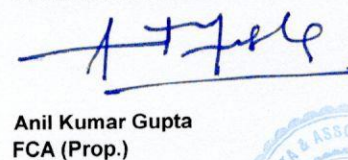 Anil Kumar Gupta
FCA (Prop.)
& ASS